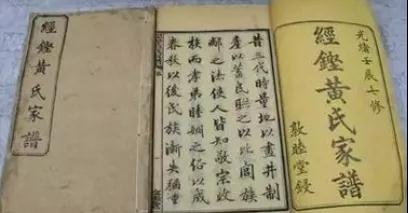 光緒壬辰七修
經鏗黃氏家譜
敦睦堂鋟
昔三代時量地以畫井制
產以養民聯之以比閭族
之法使人皆知敬宗收
族而孝弟睦婣之俗以成
春秋以後民族漸失稱重
經鏗黃氏家譜